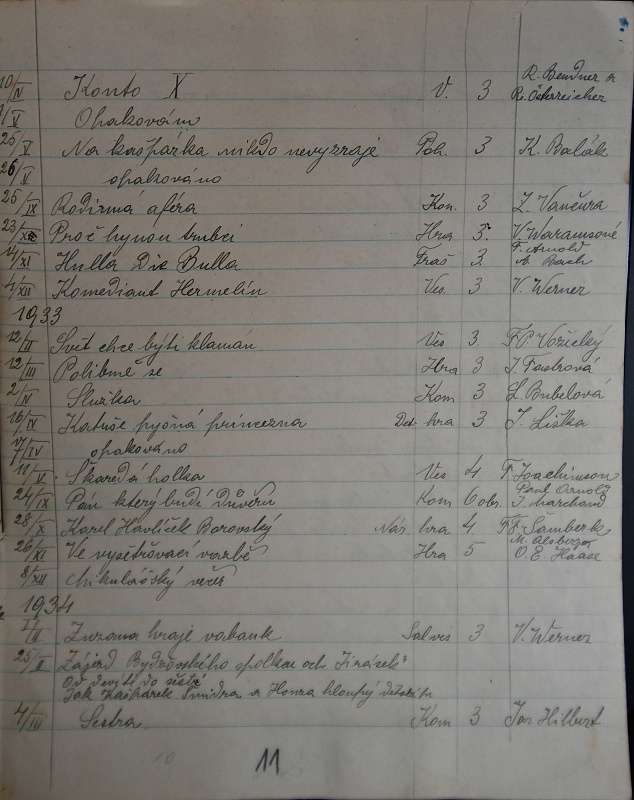 10/IV Konto X V. 3 R. Bendner a R. Österreicher
1/V Opakováno
25/V Na kašpárka nikdo nevyzraje Poh. 3 K. Balák
26/V opakováno
25/IX Rodinná aféra Kom. 3 Z. Vančura
23/X Proč hynou trubci Hra 3. V.
/XI Hulla Die Bulla Fraš 3 F. Arnold A. Bach
4/XII Komediant Hermelín Ves. 3 V. Werner
1933
12/II Svět chce býti klamán Ves 3. F.P. Vožický
12/III Polibmě se Hra 3 J. Fastrová
2/IV Služka Kom 3 L. Bubelová
16/IV Katuše pyšná princezna Det. hra 3 J. Liška
17/IV opakováno
11/V. Škaredá holka Ves 4 F. Joachimson
24/IX Pán který budí Důvěru Kom 6 obr. Paul Arnold J. Marchand
28/X Karel Havlíček Borovský Nár. hra 4. F.F. Šamberk
26/XI Ve vyšetřovací vazbě Hra 5 M. Alsberg O. E. Hasse
8/XII Mikulášský večer
1934
1/II Zuzana hraje vabank Sal ves 3 V. Werner
25/II Zájezd Bydžovského spolku och Jirásek"
Od devíti do šesté
Jak Kašpárek Šmidra a Honza hloupý
4/III Sestra Kom 3 Jar Hilbert
11